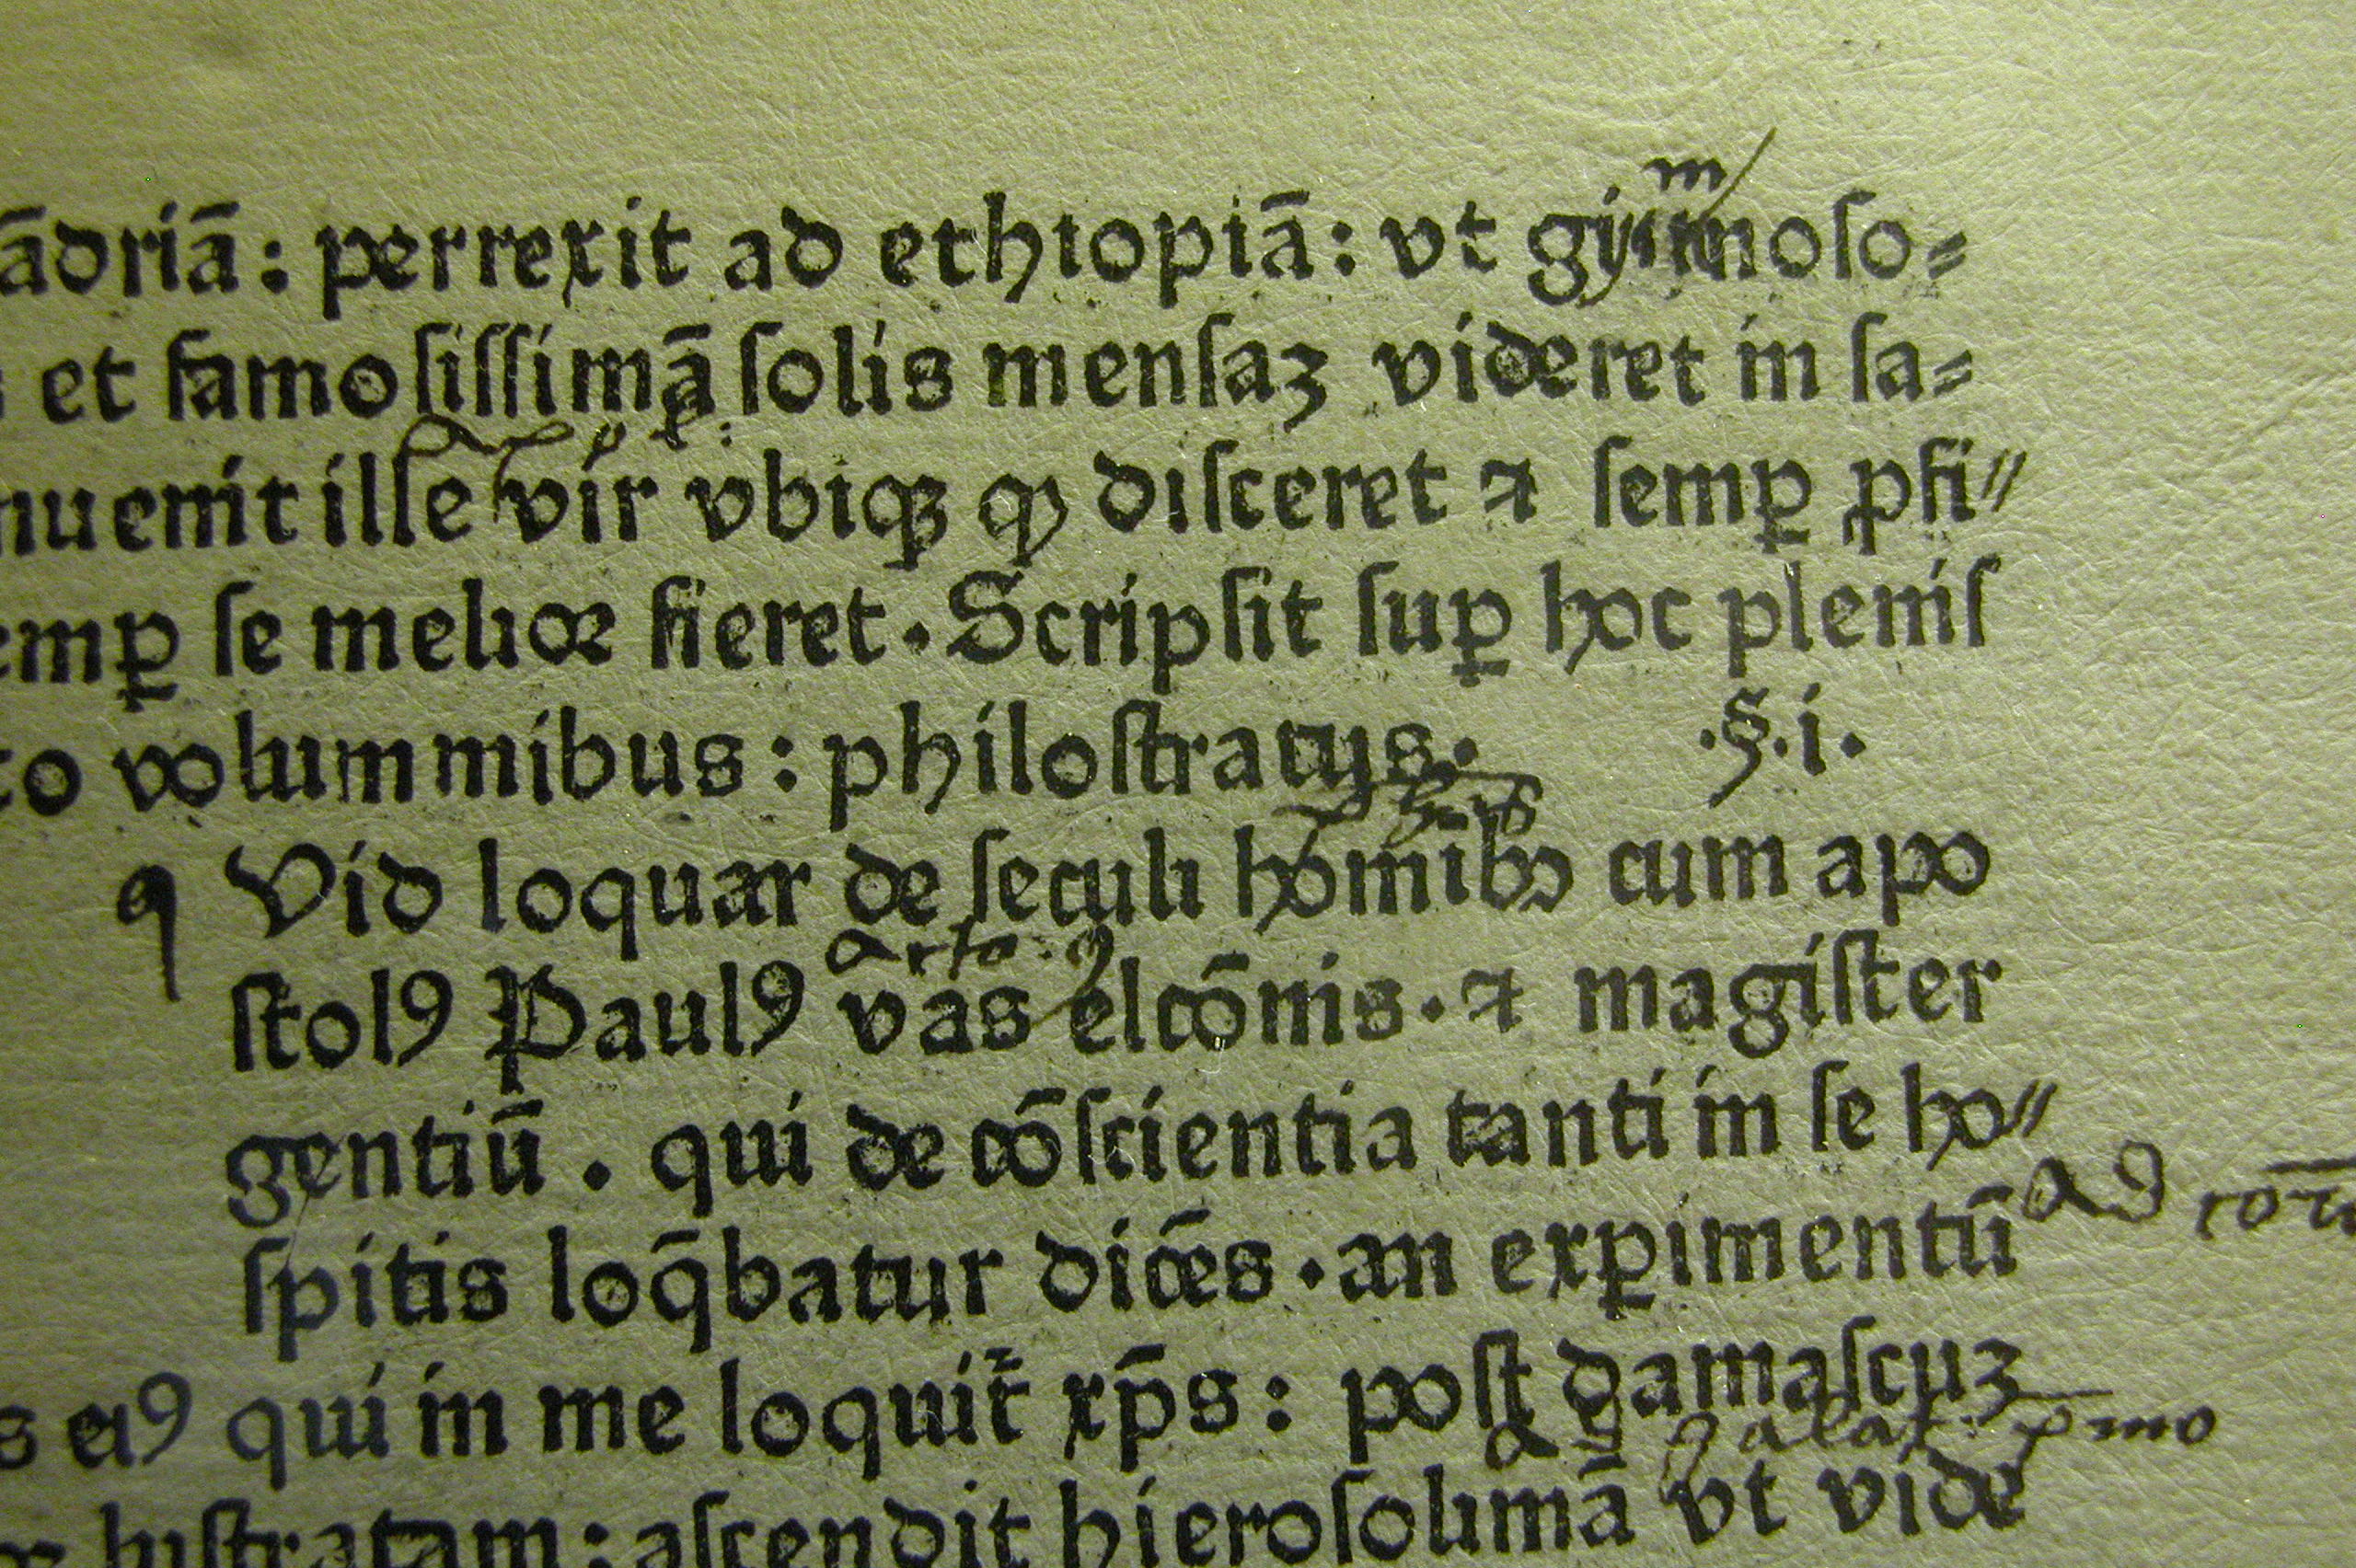 ādriā : perrexit ad ethiopiā : vt gymnoso⸗
et famosissimā solis mensaꝫ videret in sa⸗
nuenit ille vir vbiqꝫ qꝫ disceret ⁊ semꝑ ꝓfi⸗
emꝑ se melior fieret . Scripsit suꝑ hoc plenis
to voluminibus : philostratus .
.§.i.
q Vid loquar de seculi hominibꝰ cum apo
stolꝰ Paulꝰ vas elcōnis . ⁊ magister
gentiū . qui de cōscientia tanti in se ho⸗
spitis loq̄batur dicēs . an exꝑimentū
s eiꝰ qui in me loquit̄ xp̄s : post damascuꝫ
lustratam : ascendit hierosolimā vt vide